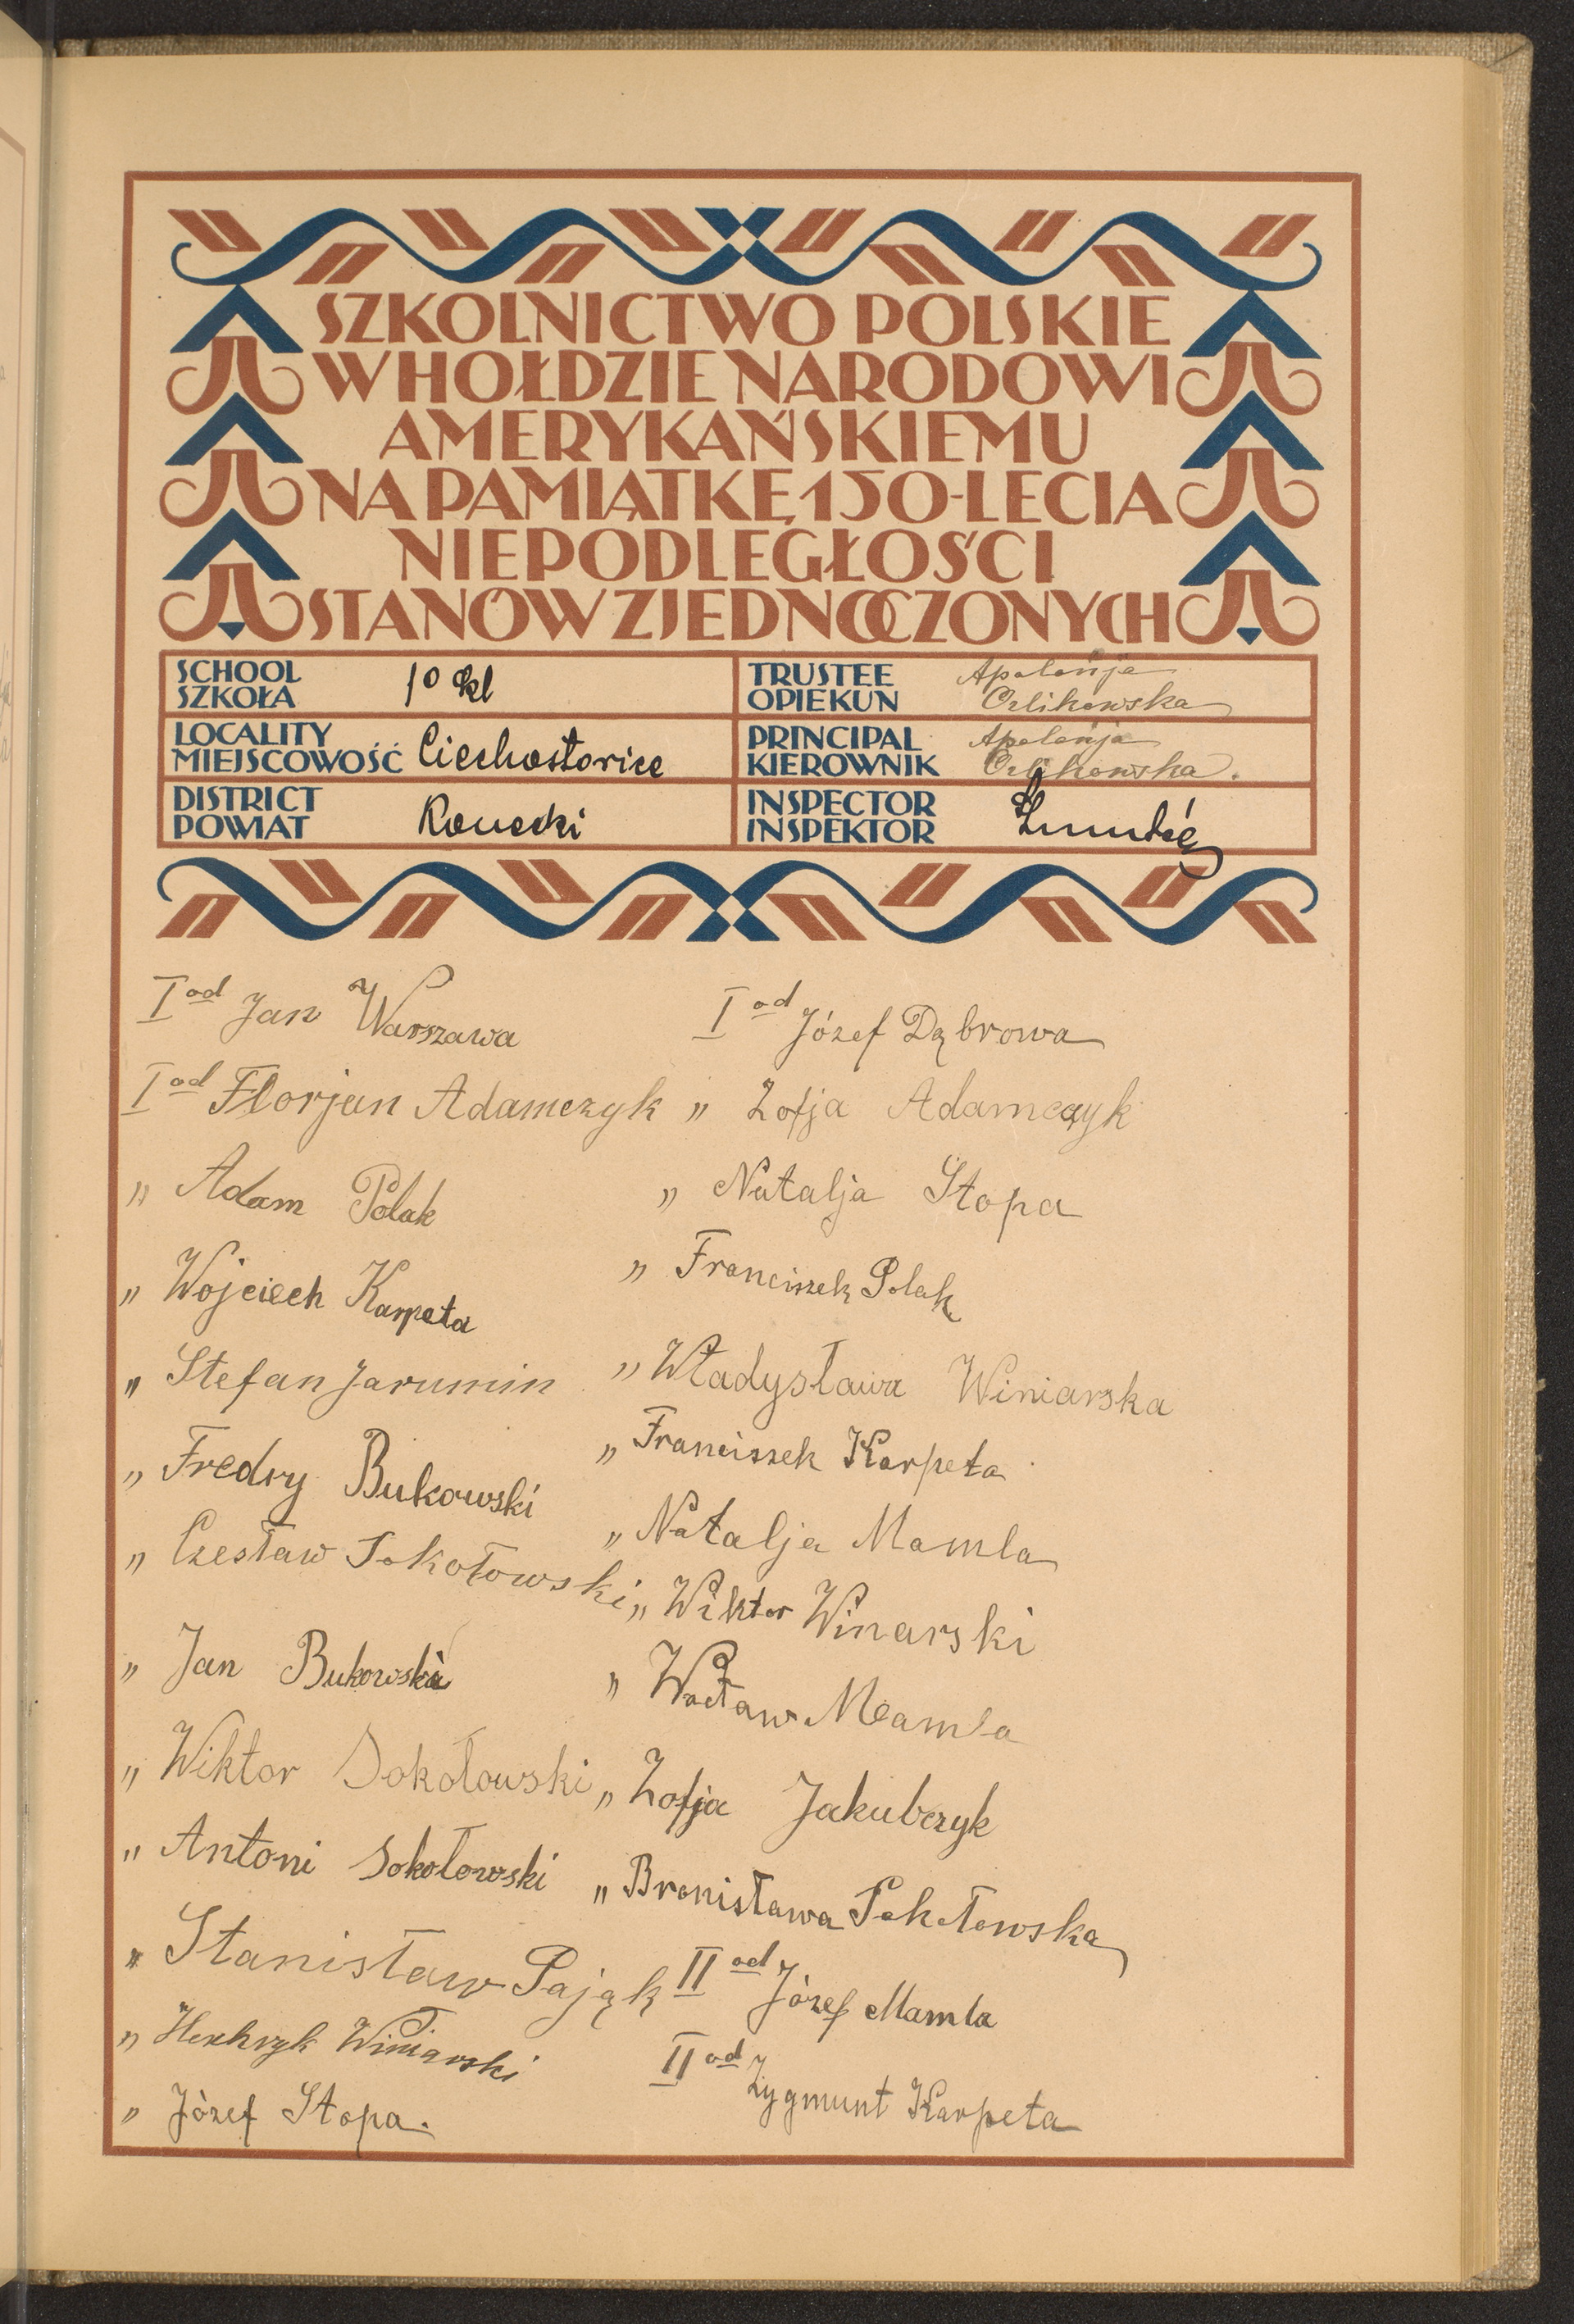 SZKOLNICTWO POLSKIE
W HOŁDZIE NARODOWI
AMERYKAŃSKIEMU
NA PAMIĄTKĘ 150-LECIA
NIEPODLEGŁOŚCI
STANÓW ZJEDNOCZONYCH
SCHOOL
SZKOŁA
1º kl
TRUSTEE
OPIEKUN
Apolonja
Orlikowska
LOCALITY
MIEJSCOWOŚĆ
Ciechostowice
PRINCIPAL
KIEROWNIK
Apolonja
Orlikowska.
DISTRICT
POWIAT
Konecki
INSPECTOR
INSPEKTOR
I od Jan Warszawa
I od Florjan Adamczyk
" Adam Polak
" Wojciech Karpeta
" Stefan Jarumin
" Fredry Bukowski
" Czesław Sokołowski
" Jan Bukowski
" Wiktor Sokołowski
" Antoni Sokołowski
" Stanisław Pająk
" Henhryk Winiarski
" Józef Stopa.
I od Józef Dąbrowa
" Zofja Adamczyk
" Natalja Stopa
" Franciszek Polak
" Władysława Winiarska
" Franciszek Karpeta
" Natalja Mamla
" Wiktor Winarski
" Wacław Mamla
" Zofja Jakubczyk
" Bronisława Sokołowska
II od Józef Mamla
II od Zygmunt Karpeta